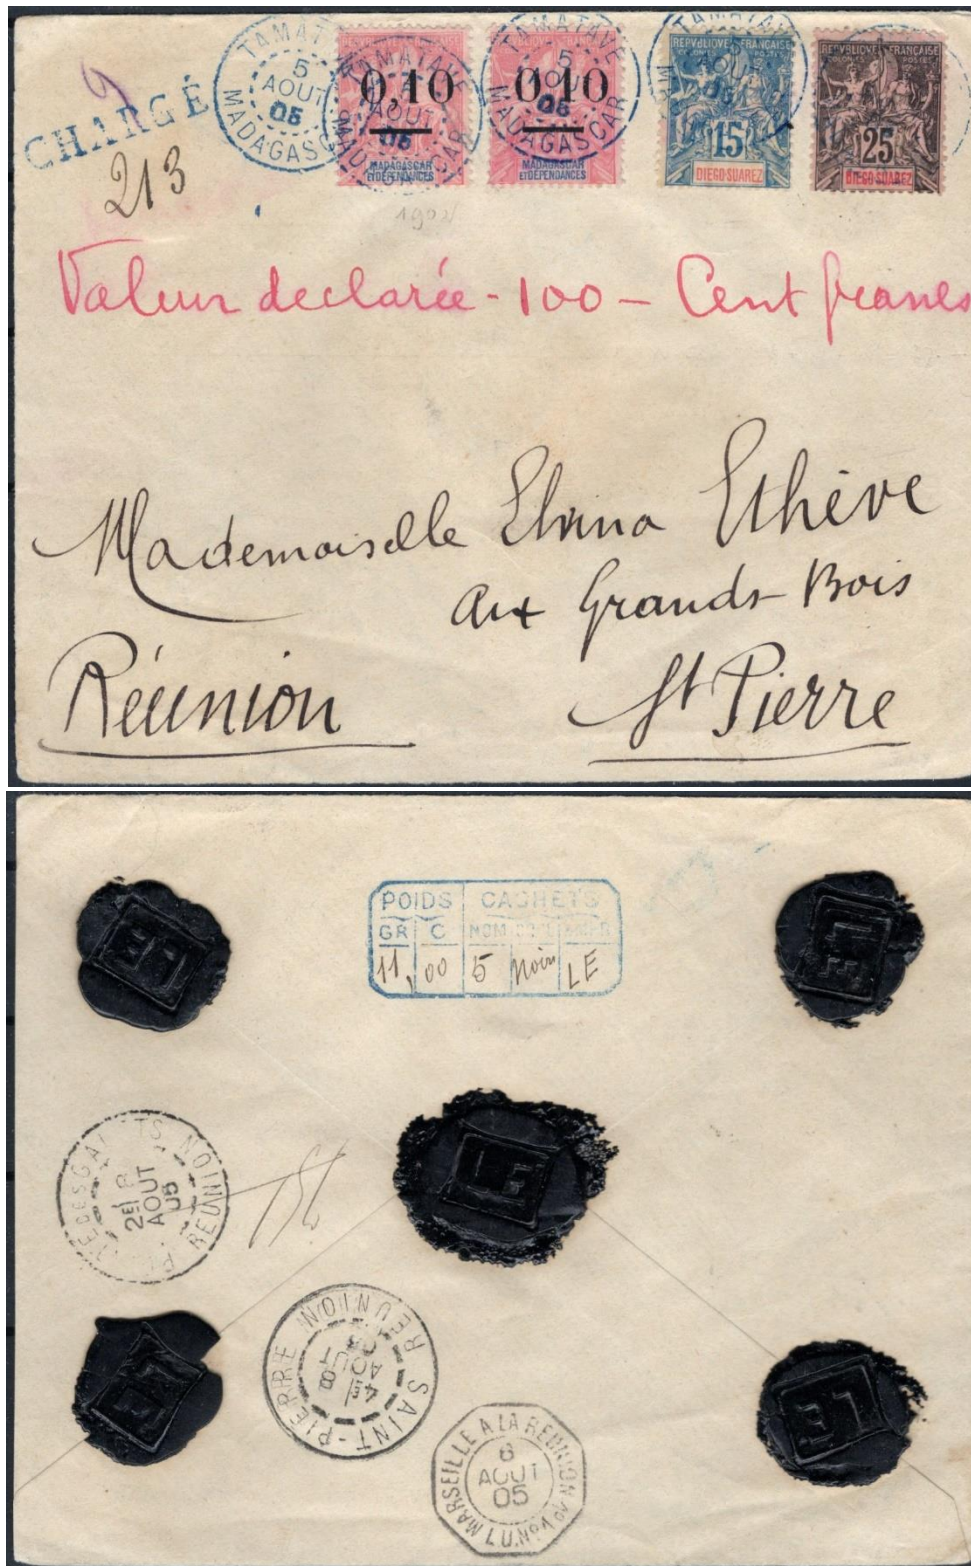 TAMATAVE
5
AOUT
05
MADAGASCAR
0,10
MADAGASCAR
ET DÉPENDANCES
TAMATAVE
AOUT
05
MADAGASCAR
0,10
MADAGASCAR
ET DÉPENDANCES
TAMATAVE
5
AOUT
05
REPUBLIQUE FRANÇAISE
COLONIES POSTES
15
DIEGO-SUAREZ
REPUBLIQUE FRANÇAISE
COLONIES POSTES
25
DIEGO-SUAREZ
CHARGÉ
213
Valeur declarée - 100 - Cent francs
Mademoiselle Ethève
aux Grands-Bois
Réunion St Pierre
POIDS CACHETS
GR C NOM
11, 00 5 Noir LE
LE
LE
LE
LE
LE
2E 8
AOUT
05
REUNION
SAINT-PIERRE
REUNION
4E 8
AOUT
05
MARSEILLE A LA REUNION
6
AOUT
05
L.U.No